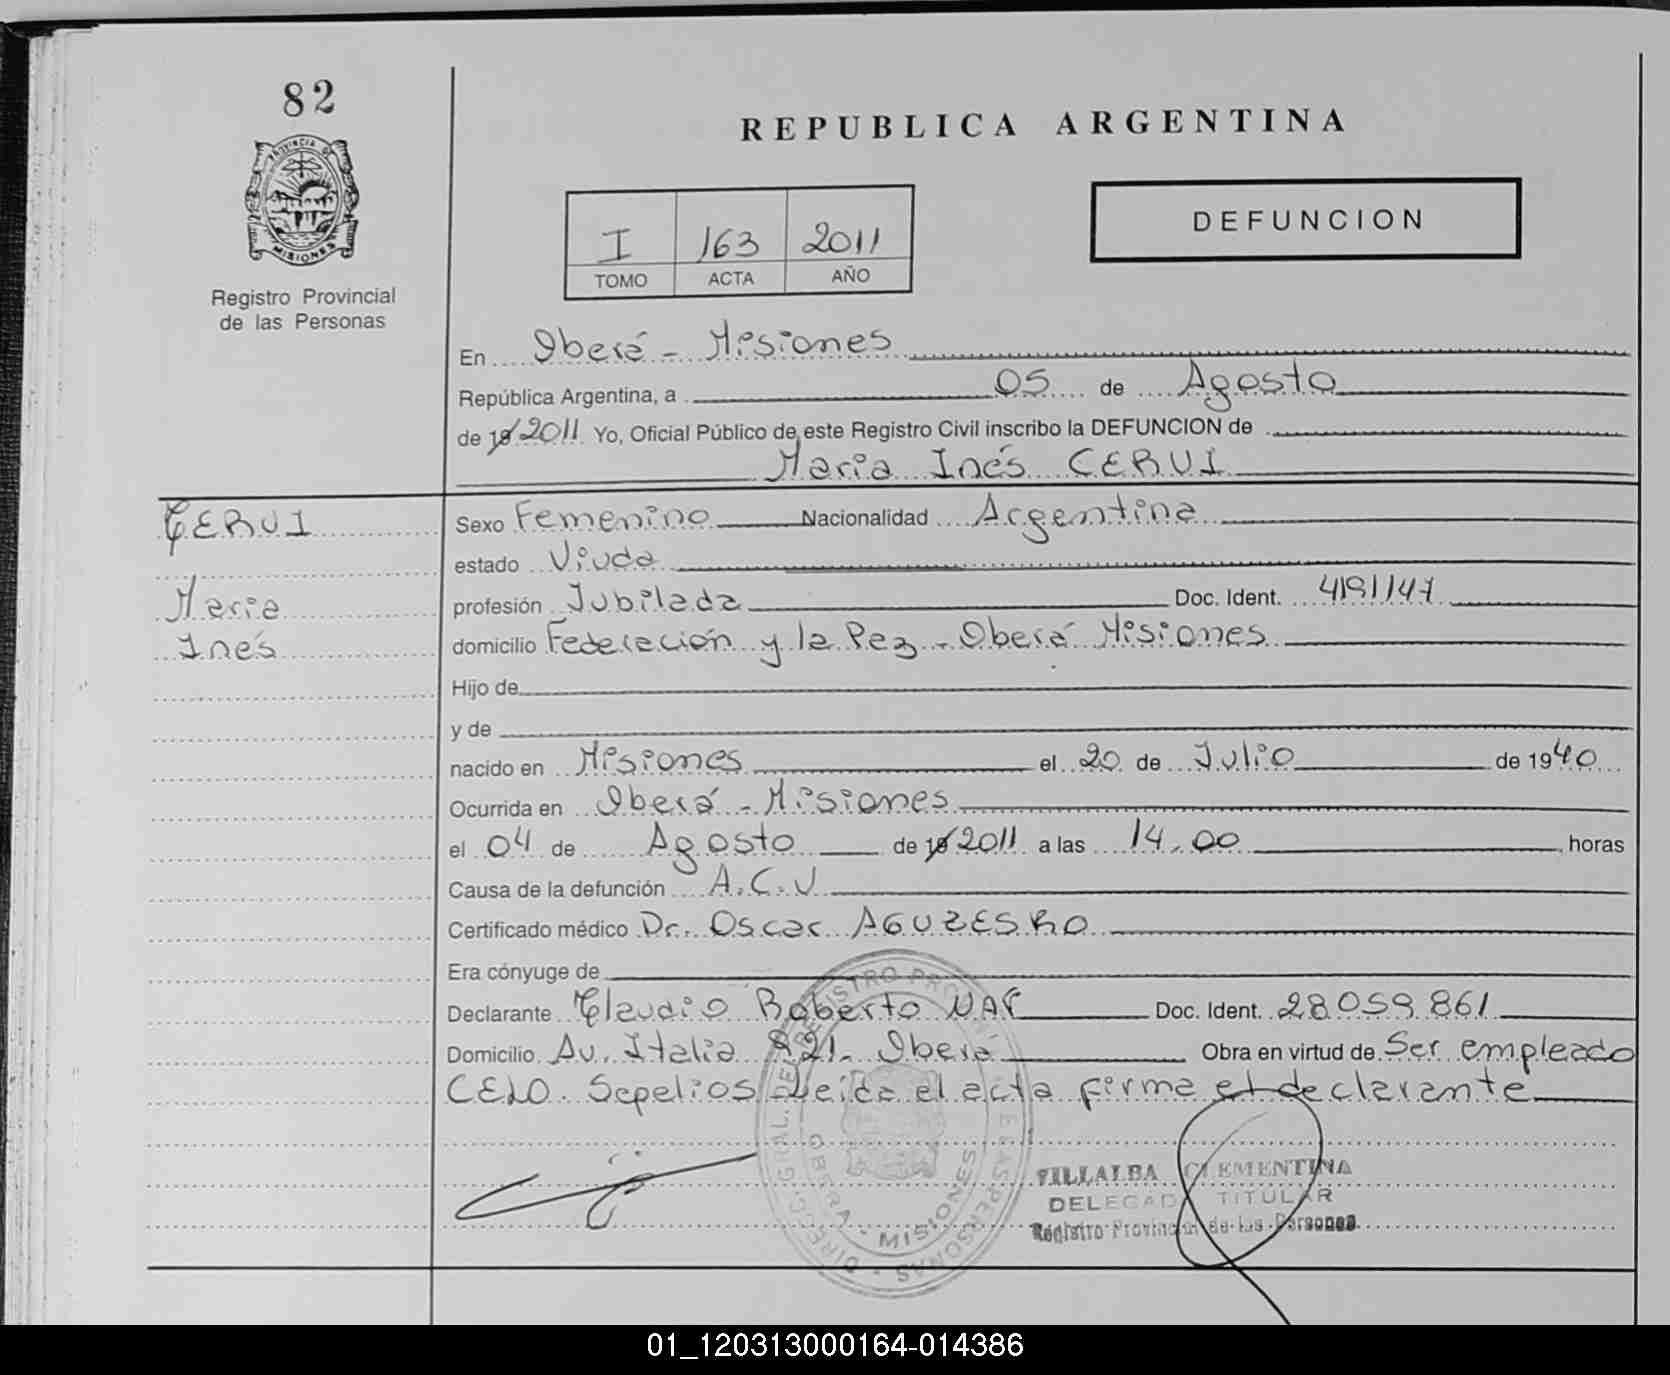 82
PROVINCIA DE
MISIONES
Registro Provincial
de las Personas
REPUBLICA ARGENTINA
I 163 2011
TOMO ACTA AÑO
DEFUNCION
En Oberá - Misiones
República Argentina, a 05 de Agosto
de 19 2011 Yo, Oficial Público de este Registro Civil inscribo la DEFUNCION de
Maria Inés CERUI
CERUI
Maria
Inés
Sexo Femenino Nacionalidad Argentina
estado Viuda
profesión Jubilada Doc. Ident. 4191147
domicilio Federación y la Paz - Oberá Misiones
Hijo de
y de
nacido en Misiones el 20 de Julio de 1940
Ocurrida en Oberá - Misiones
el 04 de Agosto de 19 2011 a las 14,00 horas
Causa de la defunción A.C.V
Certificado médico Dr. Oscar
Era cónyuge de
Declarante Claudio Roberto Doc. Ident. 28059861
Domicilio Av. Italia 821 - Oberá Obra en virtud de Ser empleado
CELO Sepelios Leída el acta firma el declarante
DIREC. GRAL. DE REGISTRO PROVINCIAL DE LAS PERSONAS
OBERA - MISIONES
VILLALBA CLEMENTINA
DELEGADA TITULAR
Registro Provincial de las Personas
01_120313000164-014386